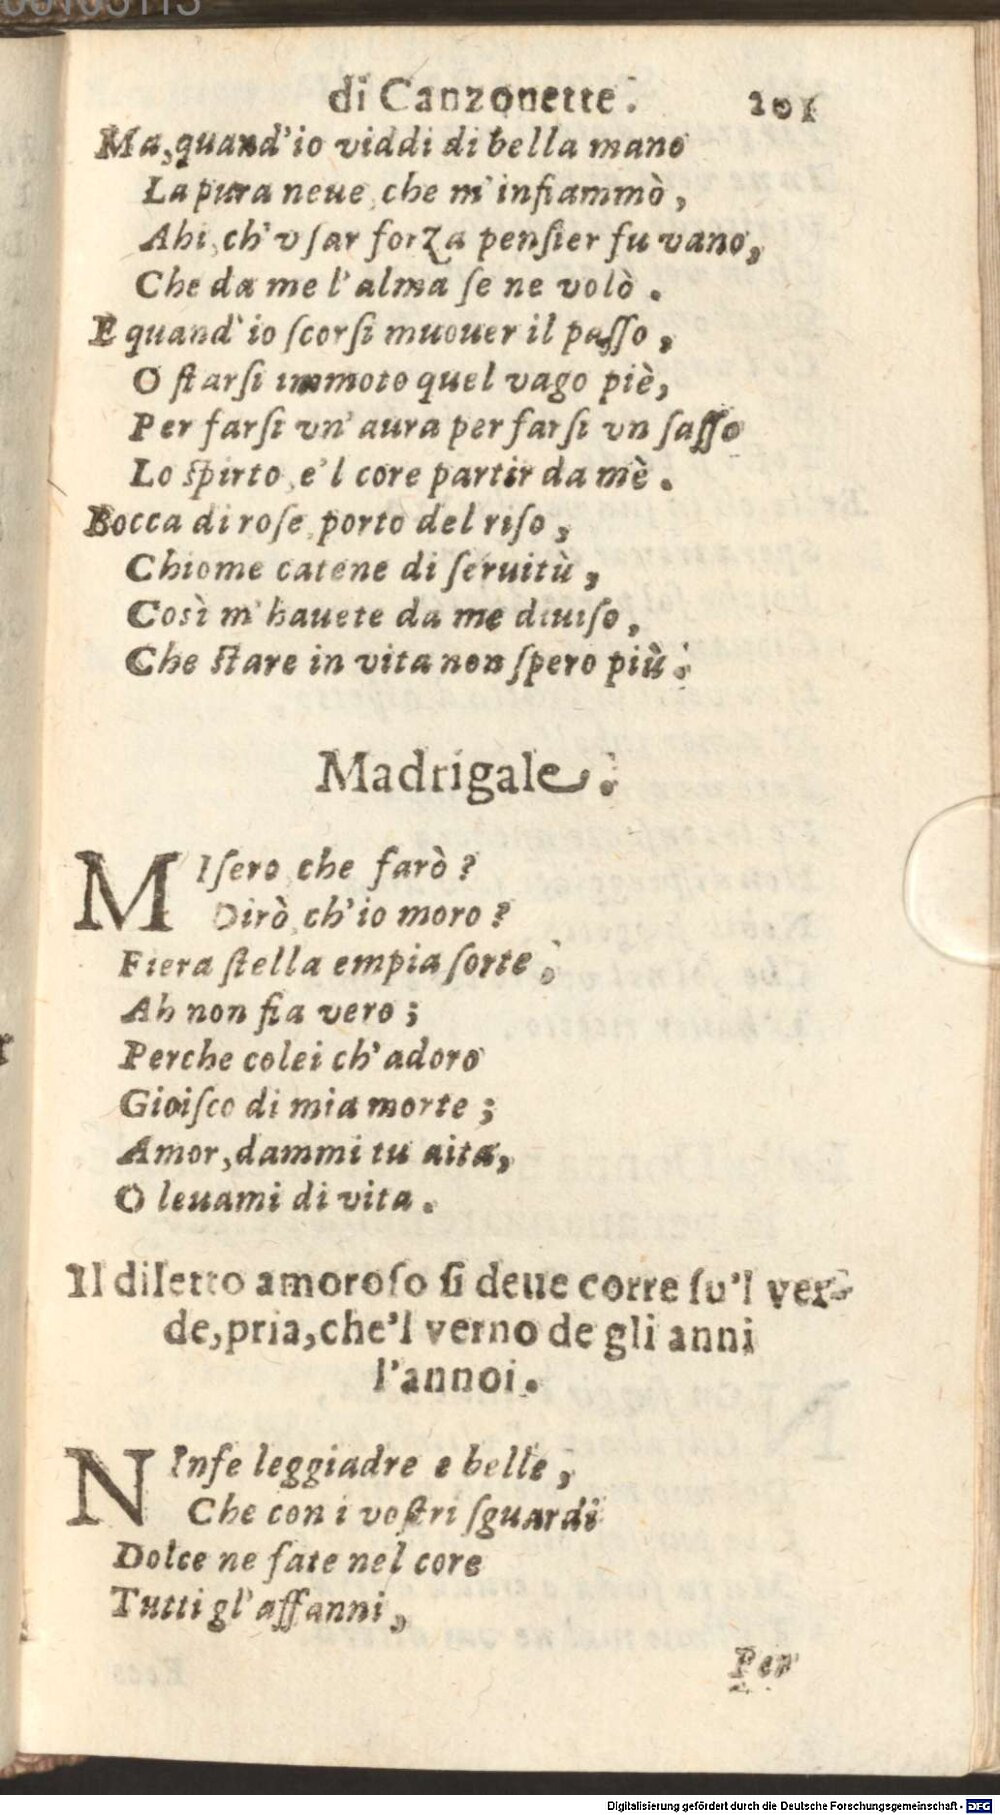 di Canzonette. 201
Ma, quand'io viddi di bella mano
La pura neue, che m'infiammò,
Ahi, ch'vſar forza penſier fu vano,
Che da me l'alma ſe ne volò.
E quand'io ſcorſi muouer il paſſo,
O ſtarſi immoto quel vago piè,
Per farſi vn'aura per farſi vn ſaſſo
Lo ſpirto, e'l core partir da mè.
Bocca di roſe, porto del riſo,
Chiome catene di ſeruitù,
Così m'hauete da me diuiſo,
Che ſtare in vita non ſpero più.
Madrigale.
MIſero, che farò?
Dirò, ch'io moro?
Fiera ſtella empia ſorte,
Ah non fia vero;
Perche colei ch'adoro
Gioiſco di mia morte;
Amor, dammi tu aita,
O leuami di vita.
Il diletto amoroſo ſi deue corre ſu'l ver-
de, pria, che'l verno de gli anni
l'annoi.
NInfe leggiadre e belle,
Che con i voſtri ſguardi
Dolce ne fate nel core
Tutti gl'affanni,
Per
Digitalisierung gefördert durch die Deutsche Forschungsgemeinschaft - DFG